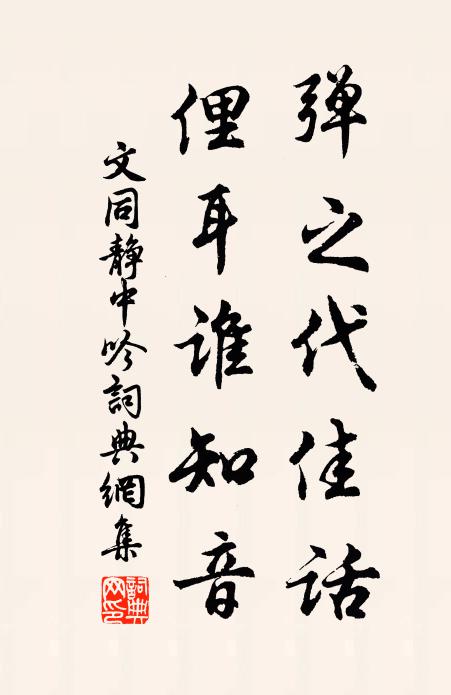 弹之代佳话
俚耳谁知音
文同静中吟詞典網集
詞典网印